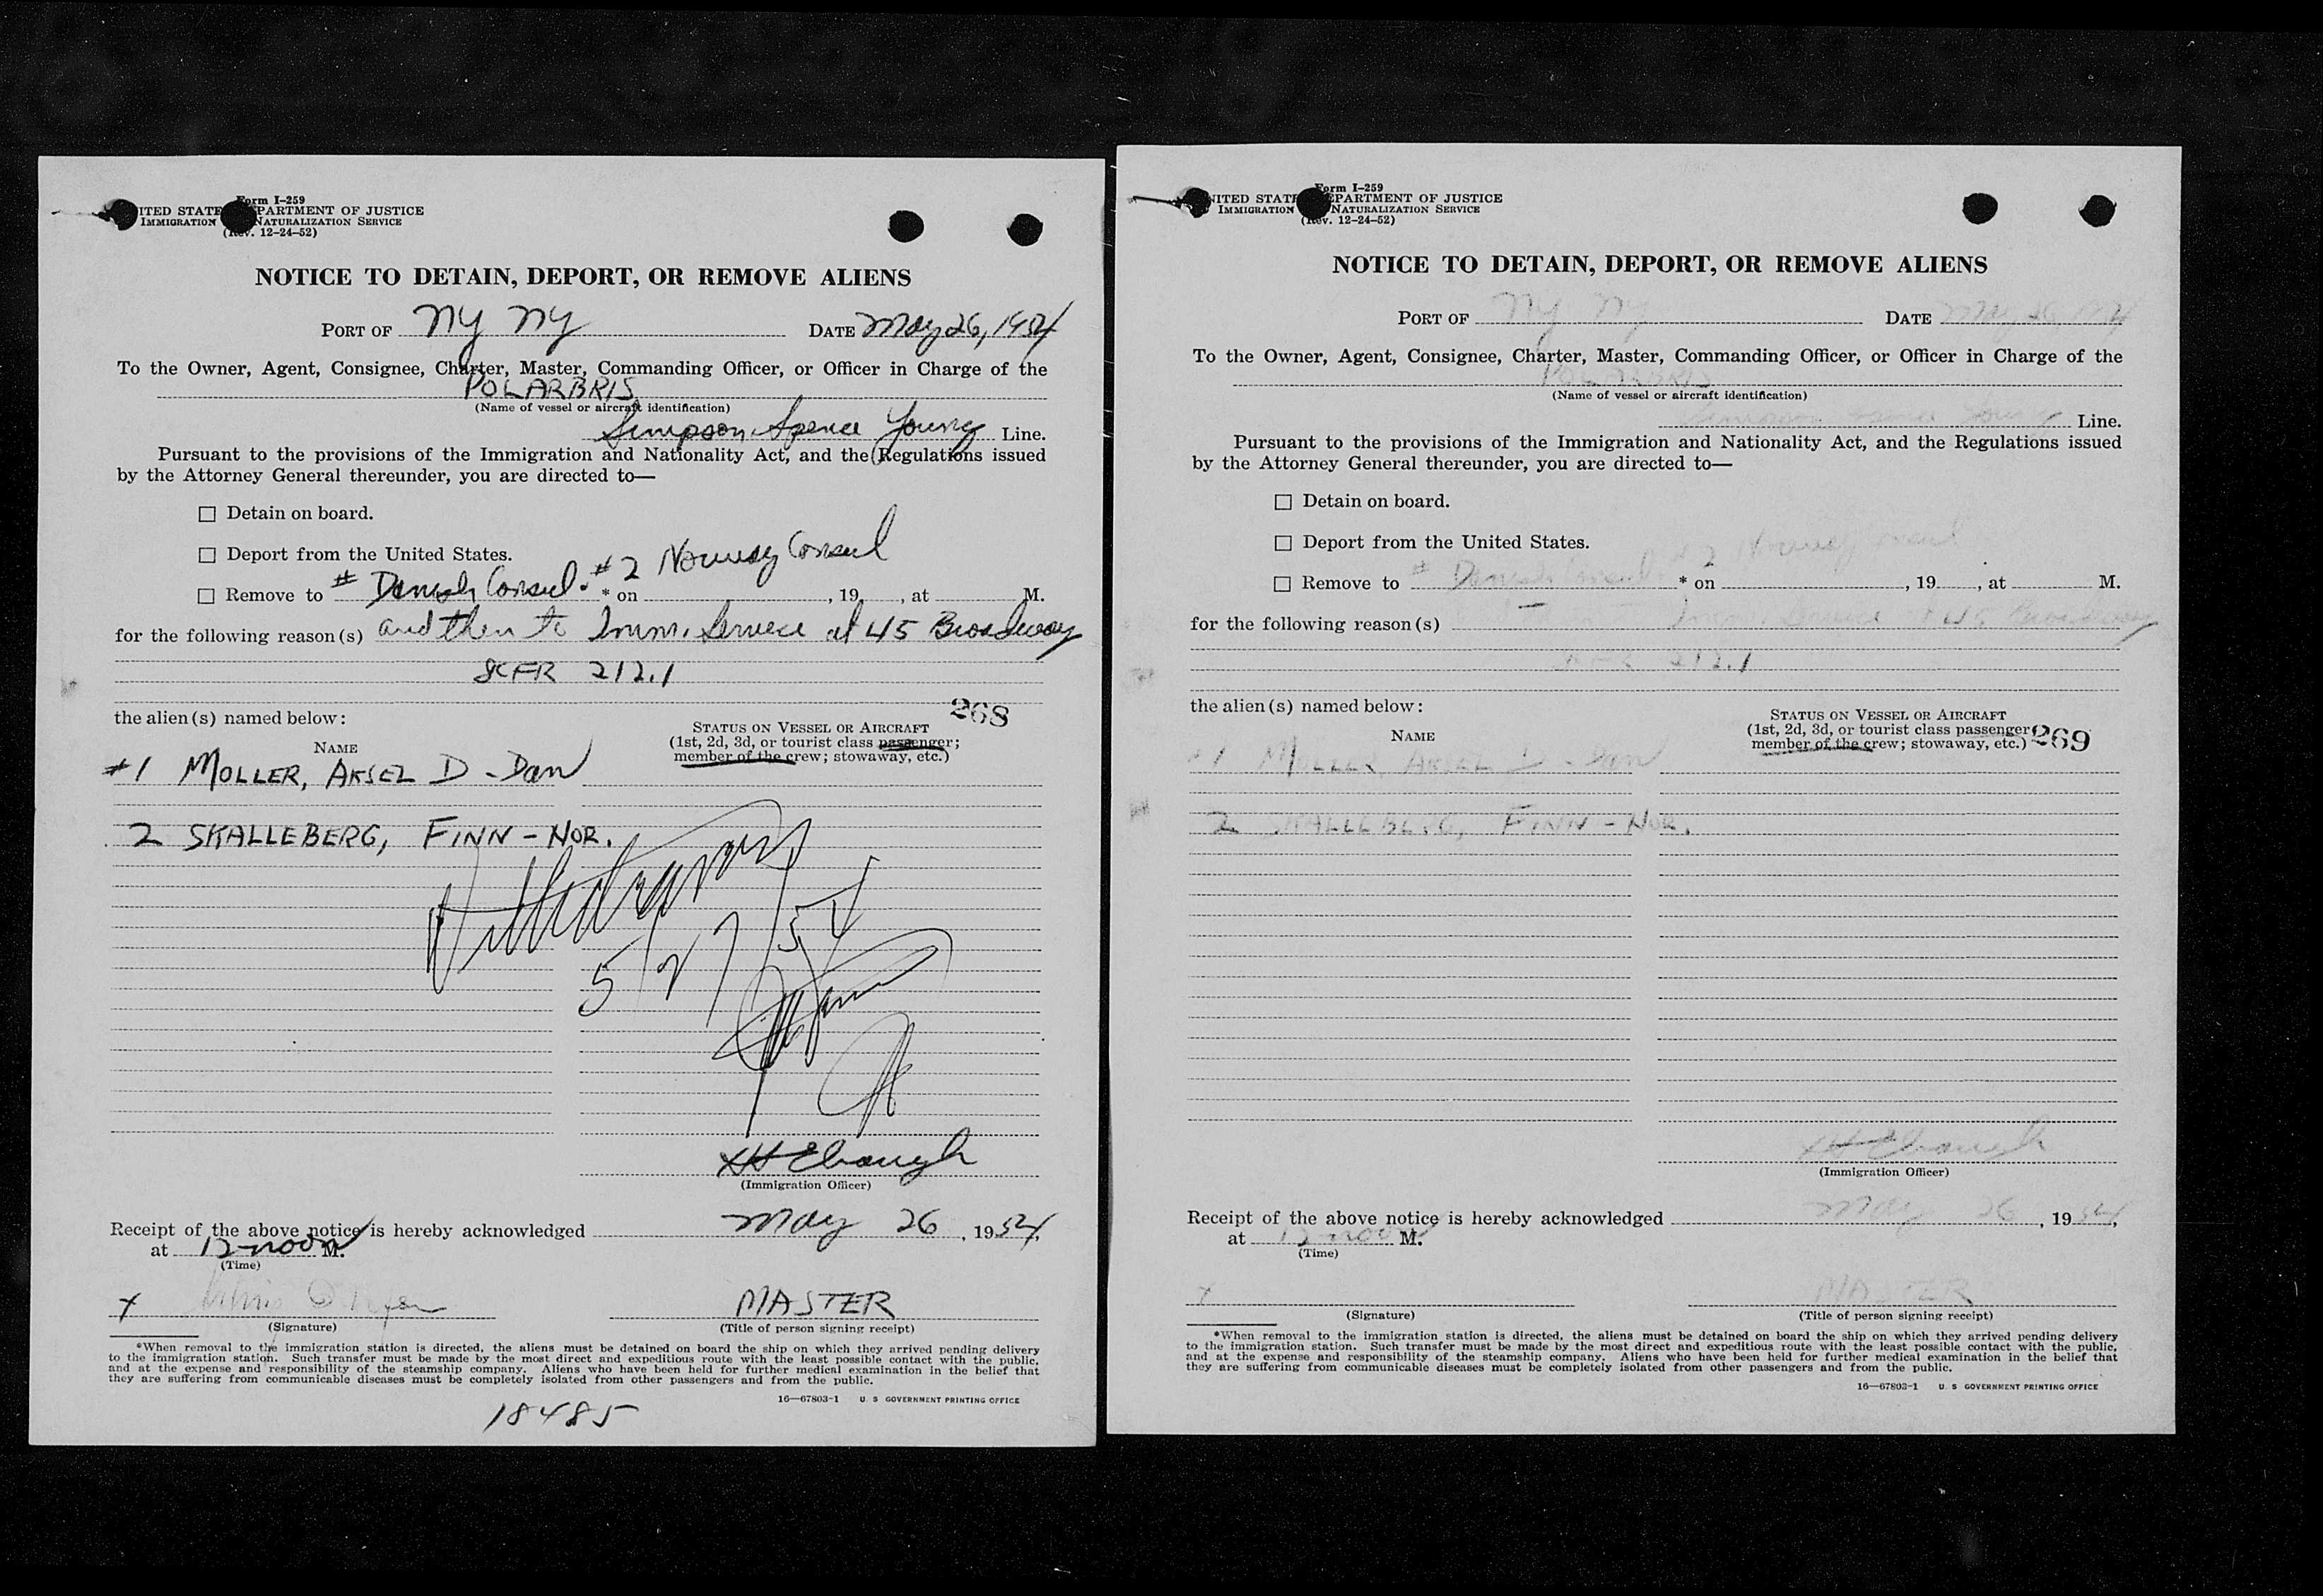 Form I-259
ITED STATE PARTMENT OF JUSTICE
IMMIGRATION NATURALIZATION SERVICE
(Rev. 12-24-52)
NOTICE TO DETAIN, DEPORT, OR REMOVE ALIENS
PORT OF NY NY DATE May 26, 1954
To the Owner, Agent, Consignee, Charter, Master, Commanding Officer, or Officer in Charge of the
POLARBRIS
(Name of vessel or aircraft identification)
Simpson Spence Young Line.
Pursuant to the provisions of the Immigration and Nationality Act, and the Regulations issued
by the Attorney General thereunder, you are directed to—
☐ Detain on board.
☐ Deport from the United States. #2 Norway Consul
☐ Remove to # Danish Consul. * on , 19 , at M.
for the following reason(s) and then to Imm. Service at 45 Broadway
8CFR 212.1
268
the alien(s) named below:
STATUS ON VESSEL OR AIRCRAFT
(1st, 2d, 3d, or tourist class passenger;
member of the crew; stowaway, etc.)
NAME
#1 MOLLER, AKSEL D - Dan
2 SKALLEBERG, FINN - NOR.
5/27/54
(Immigration Officer)
Receipt of the above notice is hereby acknowledged May 26, 1954,
at 12 noon M.
(Time)
X
MASTER
(Signature)
(Title of person signing receipt)
*When removal to the immigration station is directed, the aliens must be detained on board the ship on which they arrived pending delivery
to the immigration station. Such transfer must be made by the most direct and expeditious route with the least possible contact with the public,
and at the expense and responsibility of the steamship company. Aliens who have been held for further medical examination in the belief that
they are suffering from communicable diseases must be completely isolated from other passengers and from the public.
16—67803-1 U. S GOVERNMENT PRINTING OFFICE
18485
Form I-259
NITED STAT EPARTMENT OF JUSTICE
IMMIGRATION NATURALIZATION SERVICE
(Rev. 12-24-52)
NOTICE TO DETAIN, DEPORT, OR REMOVE ALIENS
PORT OF NY NY DATE May 26, 1954
To the Owner, Agent, Consignee, Charter, Master, Commanding Officer, or Officer in Charge of the
POLARBRIS
(Name of vessel or aircraft identification)
Simpson Spence Young Line.
Pursuant to the provisions of the Immigration and Nationality Act, and the Regulations issued
by the Attorney General thereunder, you are directed to—
☐ Detain on board.
☐ Deport from the United States. 2 Norway Consul
☐ Remove to # Danish Consul * on , 19 , at M.
for the following reason(s) Imm Service 45 Broadway
8CFR 212.1
the alien(s) named below:
STATUS ON VESSEL OR AIRCRAFT
(1st, 2d, 3d, or tourist class passenger
member of the crew; stowaway, etc.)
269
NAME
#1 MOLLER, AKSEL D - Dan
2 SKALLEBERG, FINN - NOR.
(Immigration Officer)
Receipt of the above notice is hereby acknowledged May 26, 1954,
at 12 noon M.
(Time)
X
MASTER
(Signature)
(Title of person signing receipt)
*When removal to the immigration station is directed, the aliens must be detained on board the ship on which they arrived pending delivery
to the immigration station. Such transfer must be made by the most direct and expeditious route with the least possible contact with the public,
and at the expense and responsibility of the steamship company. Aliens who have been held for further medical examination in the belief that
they are suffering from communicable diseases must be completely isolated from other passengers and from the public.
16—67803-1 U. S GOVERNMENT PRINTING OFFICE